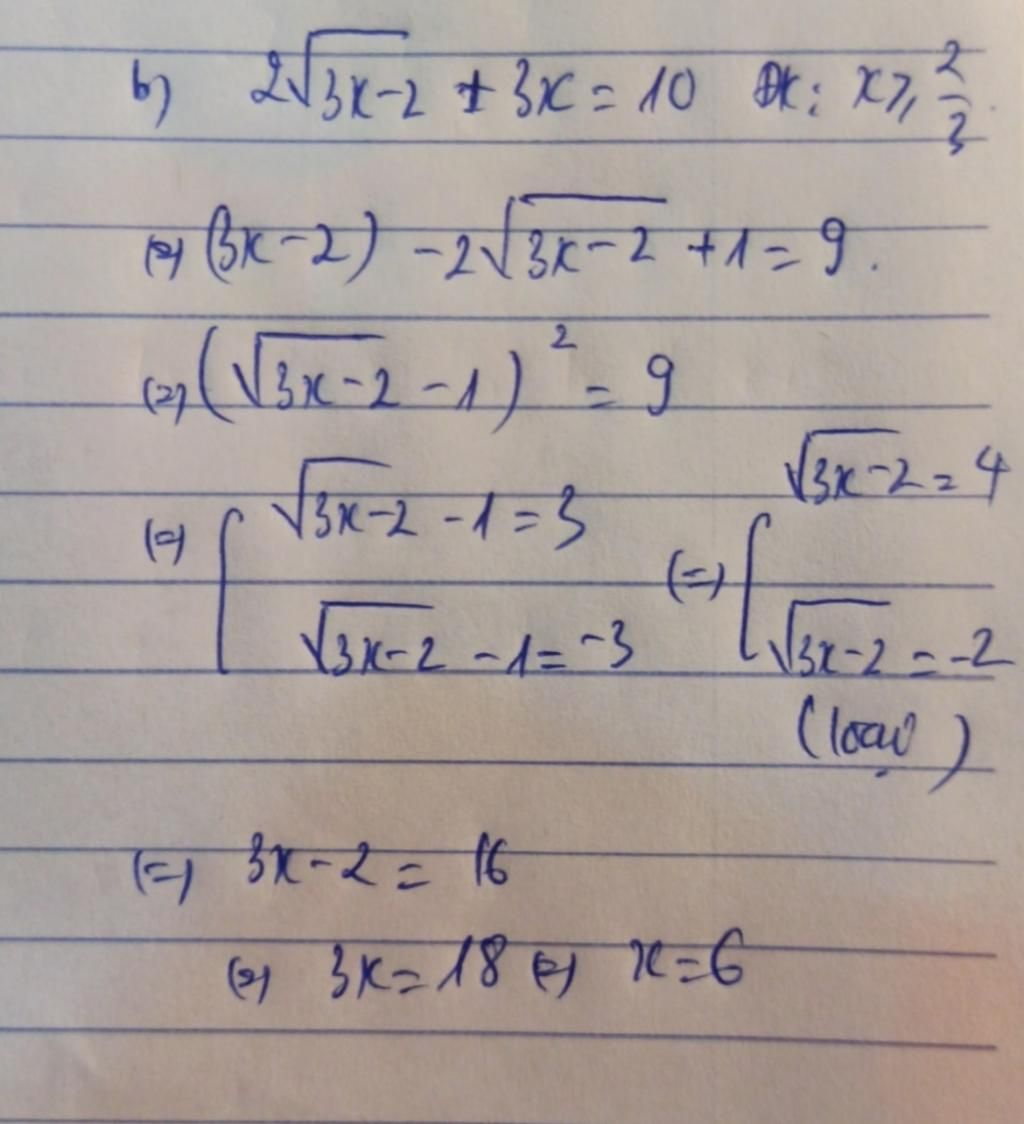 b) 2√(3x-2) + 3x = 10 ĐK: x ≥ 2/3.
(=) (3x-2) - 2√(3x-2) + 1 = 9.
(=) (√(3x-2) - 1)² = 9
(=) [ √(3x-2) - 1 = 3 (=) [ √(3x-2) = 4
√(3x-2) - 1 = -3 √(3x-2) = -2
(loại)
(=) 3x-2 = 16
(=) 3x = 18 (=) x = 6